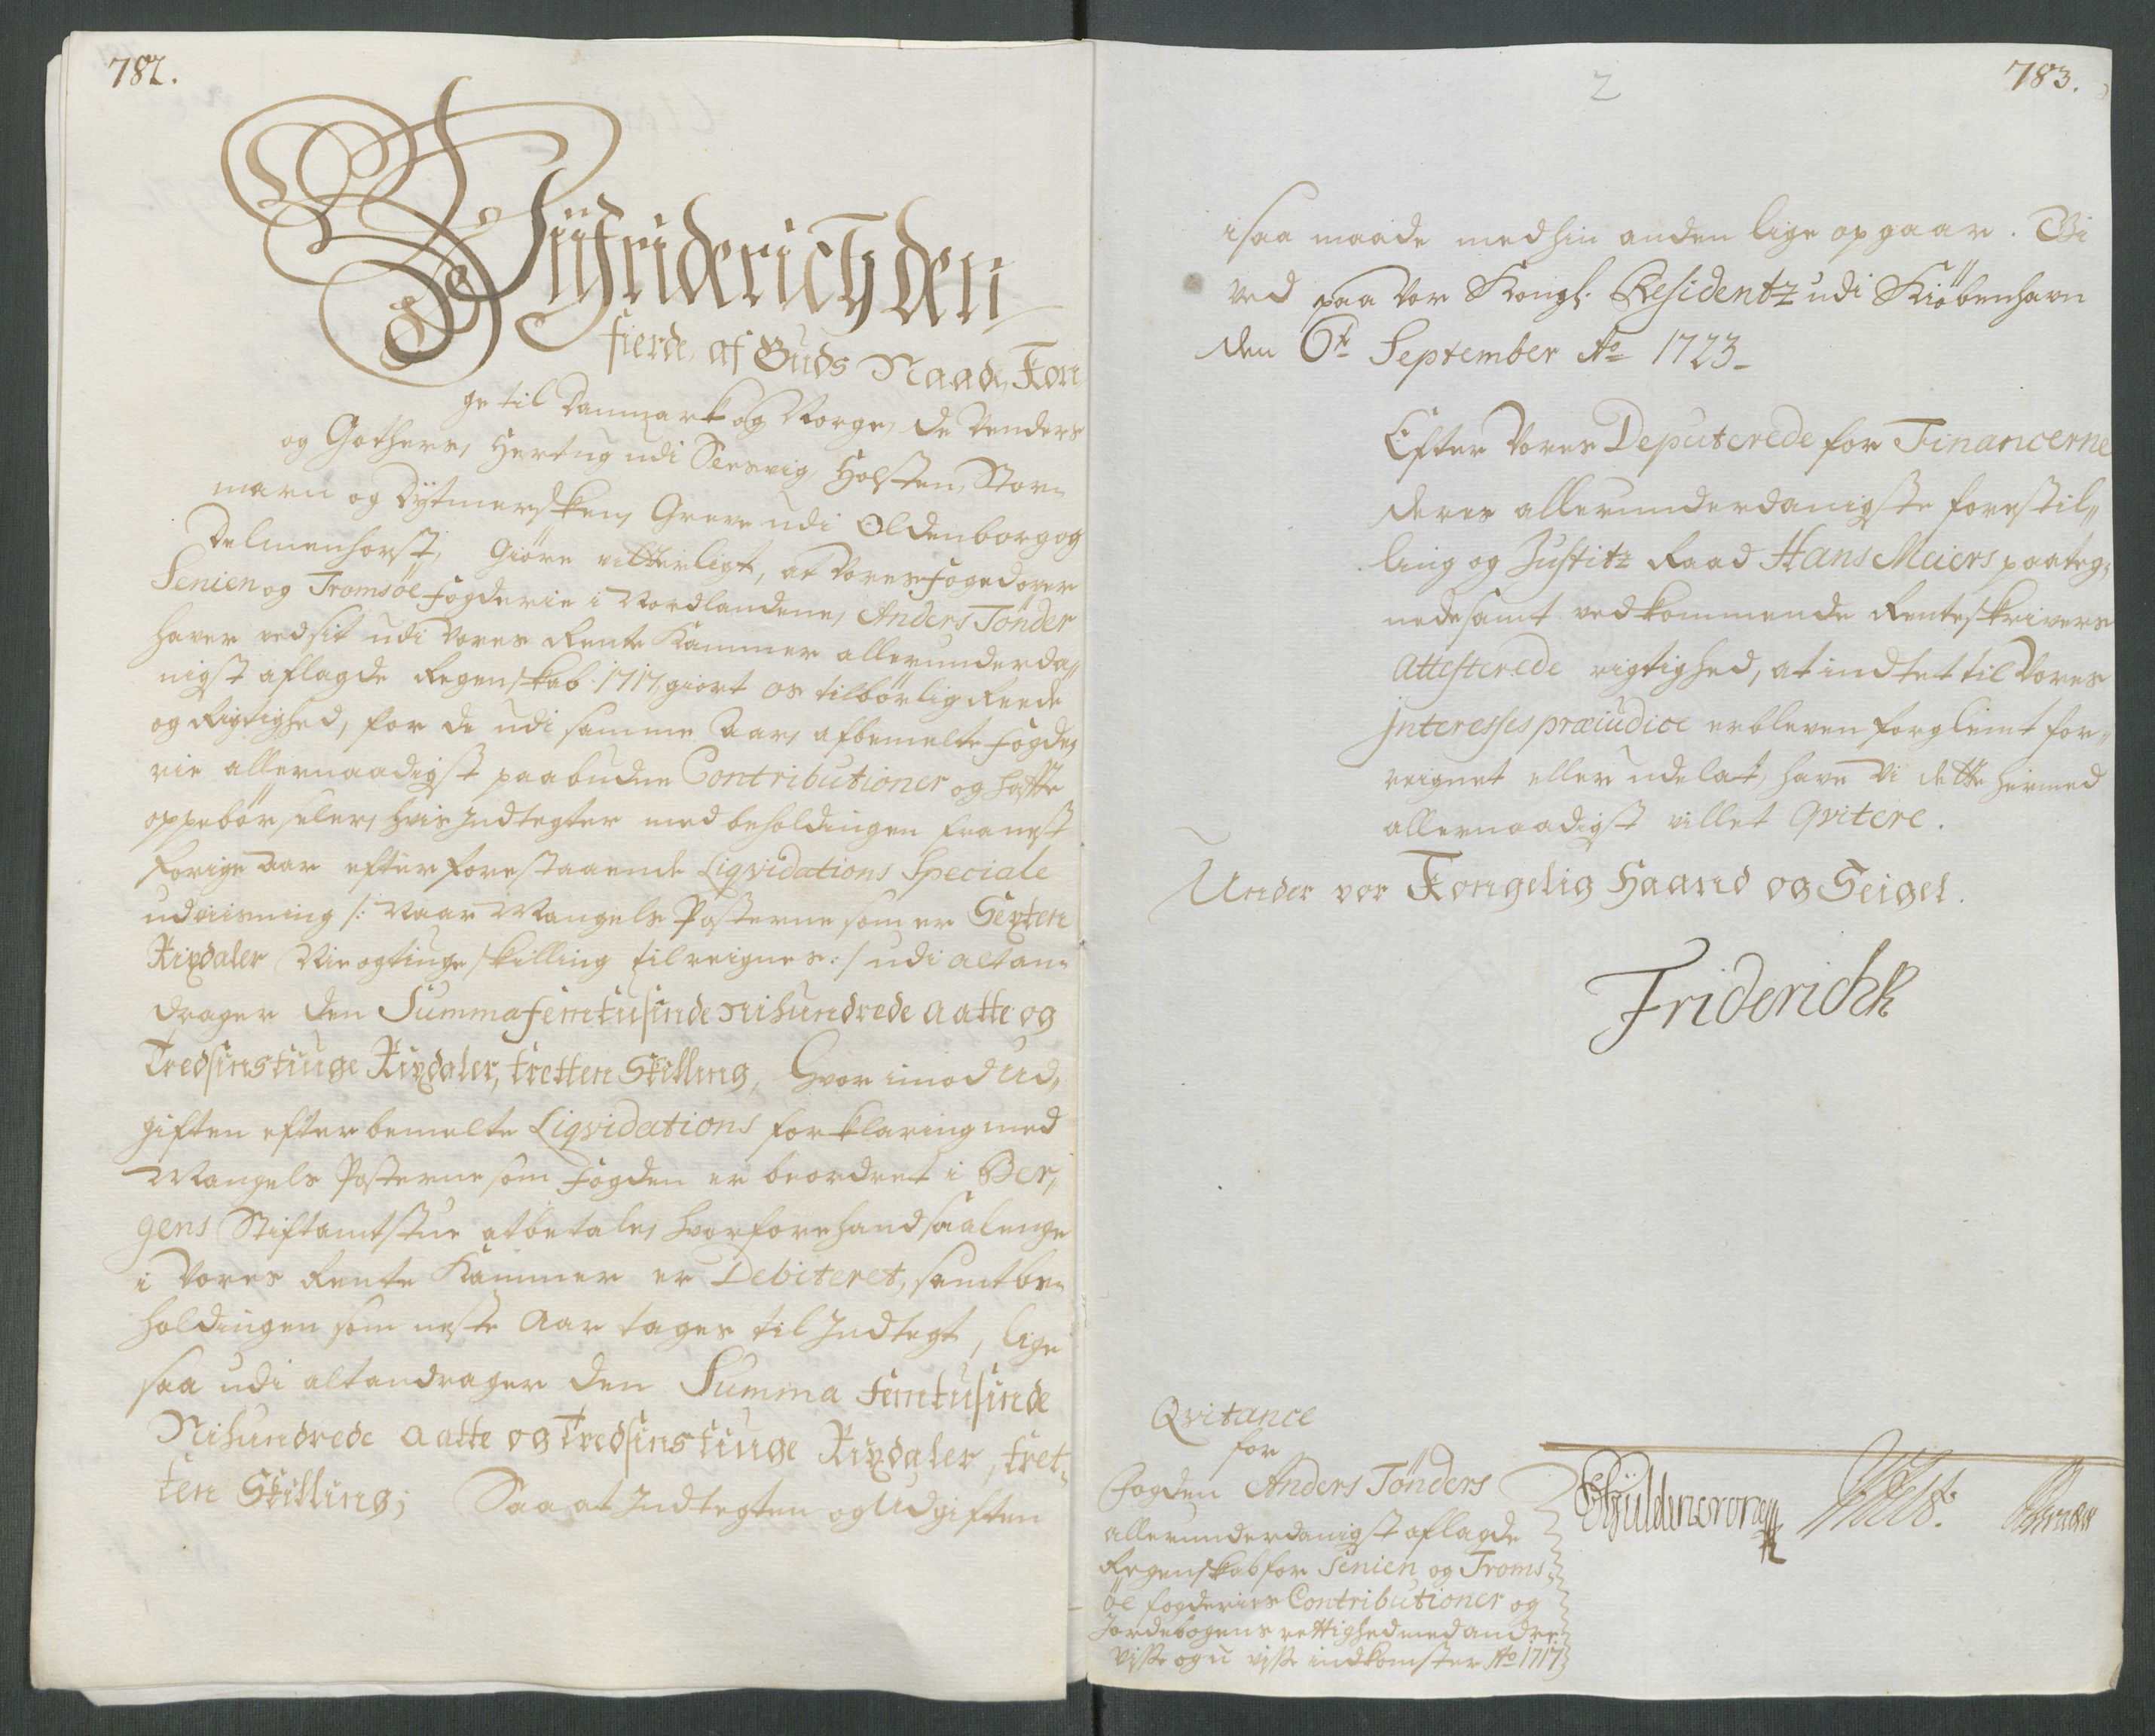 782.
Wii Friderich den
fierde, af Guds Naade, Kon
ge til Danmark og Norge, de Venders
og Gothers, Hertug udi Slesvig Holsten, Stor-
marn og Dytmersken, Greve udi Oldenborg og
Delmenhorst, Giøre vitterligt, at Vores foged over
Senien og Tromsøe fogderie i Nordlandene, Anders Tønder
haver ved sit udi Vores Rente Kammer allerunderda„
nigst aflagde Regenskab 1717, giort os tilbørlig Reede
og Rigtighed, for de udi samme Aar, afbemelte fogde,
rie allernaadigst paabudne Contributioner og hafte
oppebørseler, hvis Indtegter med beholdingen fra nest
forige Aar efter forestaaende Liqvidations Speciale
udviisning /: Naar Mangels Posterne som er Sexten
Rixdaler Nie og tiuge skilling tilreignes :/ udi alt an-
drager den Summa femtusinde Nihundrede aatte og
Tredsinstiuge Rixdaler, tretten Skilling, Hvor imod Ud,
giften efter bemelte Liqvidations forklaring med
Mangels Posterne som fogden er beordret i Ber,
gens Stiftamtstue at betale, hvorfore hand saalenge
i Vores Rente Kammer er Debiteret, samt be-
holdingen som neste Aar tages til Indtegt, lige
saa udi alt andrager den Summa femtusinde
Nihundrede aatte og Tredsinstiuge Rixdaler, tret-
ten Skilling; Saa at Indtegten og Udgiften
2
783.
i saa maade med hin anden lige opgaar. Gi
ved paa Vor Kongl. Residentz udi Kiøbenhavn
den 6te September Ao 1723_
Efter Vores Deputerede for Financerne
deres allerunderdanigste forestil„
ling og Justitz Raad Hans Meiers paateg,
nede samt ved kommende Renteskrivers
Attesterede rigtighed, at indtet til Vores
Interesses præiudice er bleven forglemt for„
reignet eller udelat, have Vi dette hermed
allernaadigst villet Qvitere.
Under vor Kongelig Haand og Seigel.
FriderichR
Qvitance
for
Fogden Anders Tønders
allerunderdanigst aflagde
Regenskab for Senien og Troms,
øe fogderies Contributioner og
Jordebogens rettighed med andre
visse og u visse indkomster Ao 1717
Güldencrone